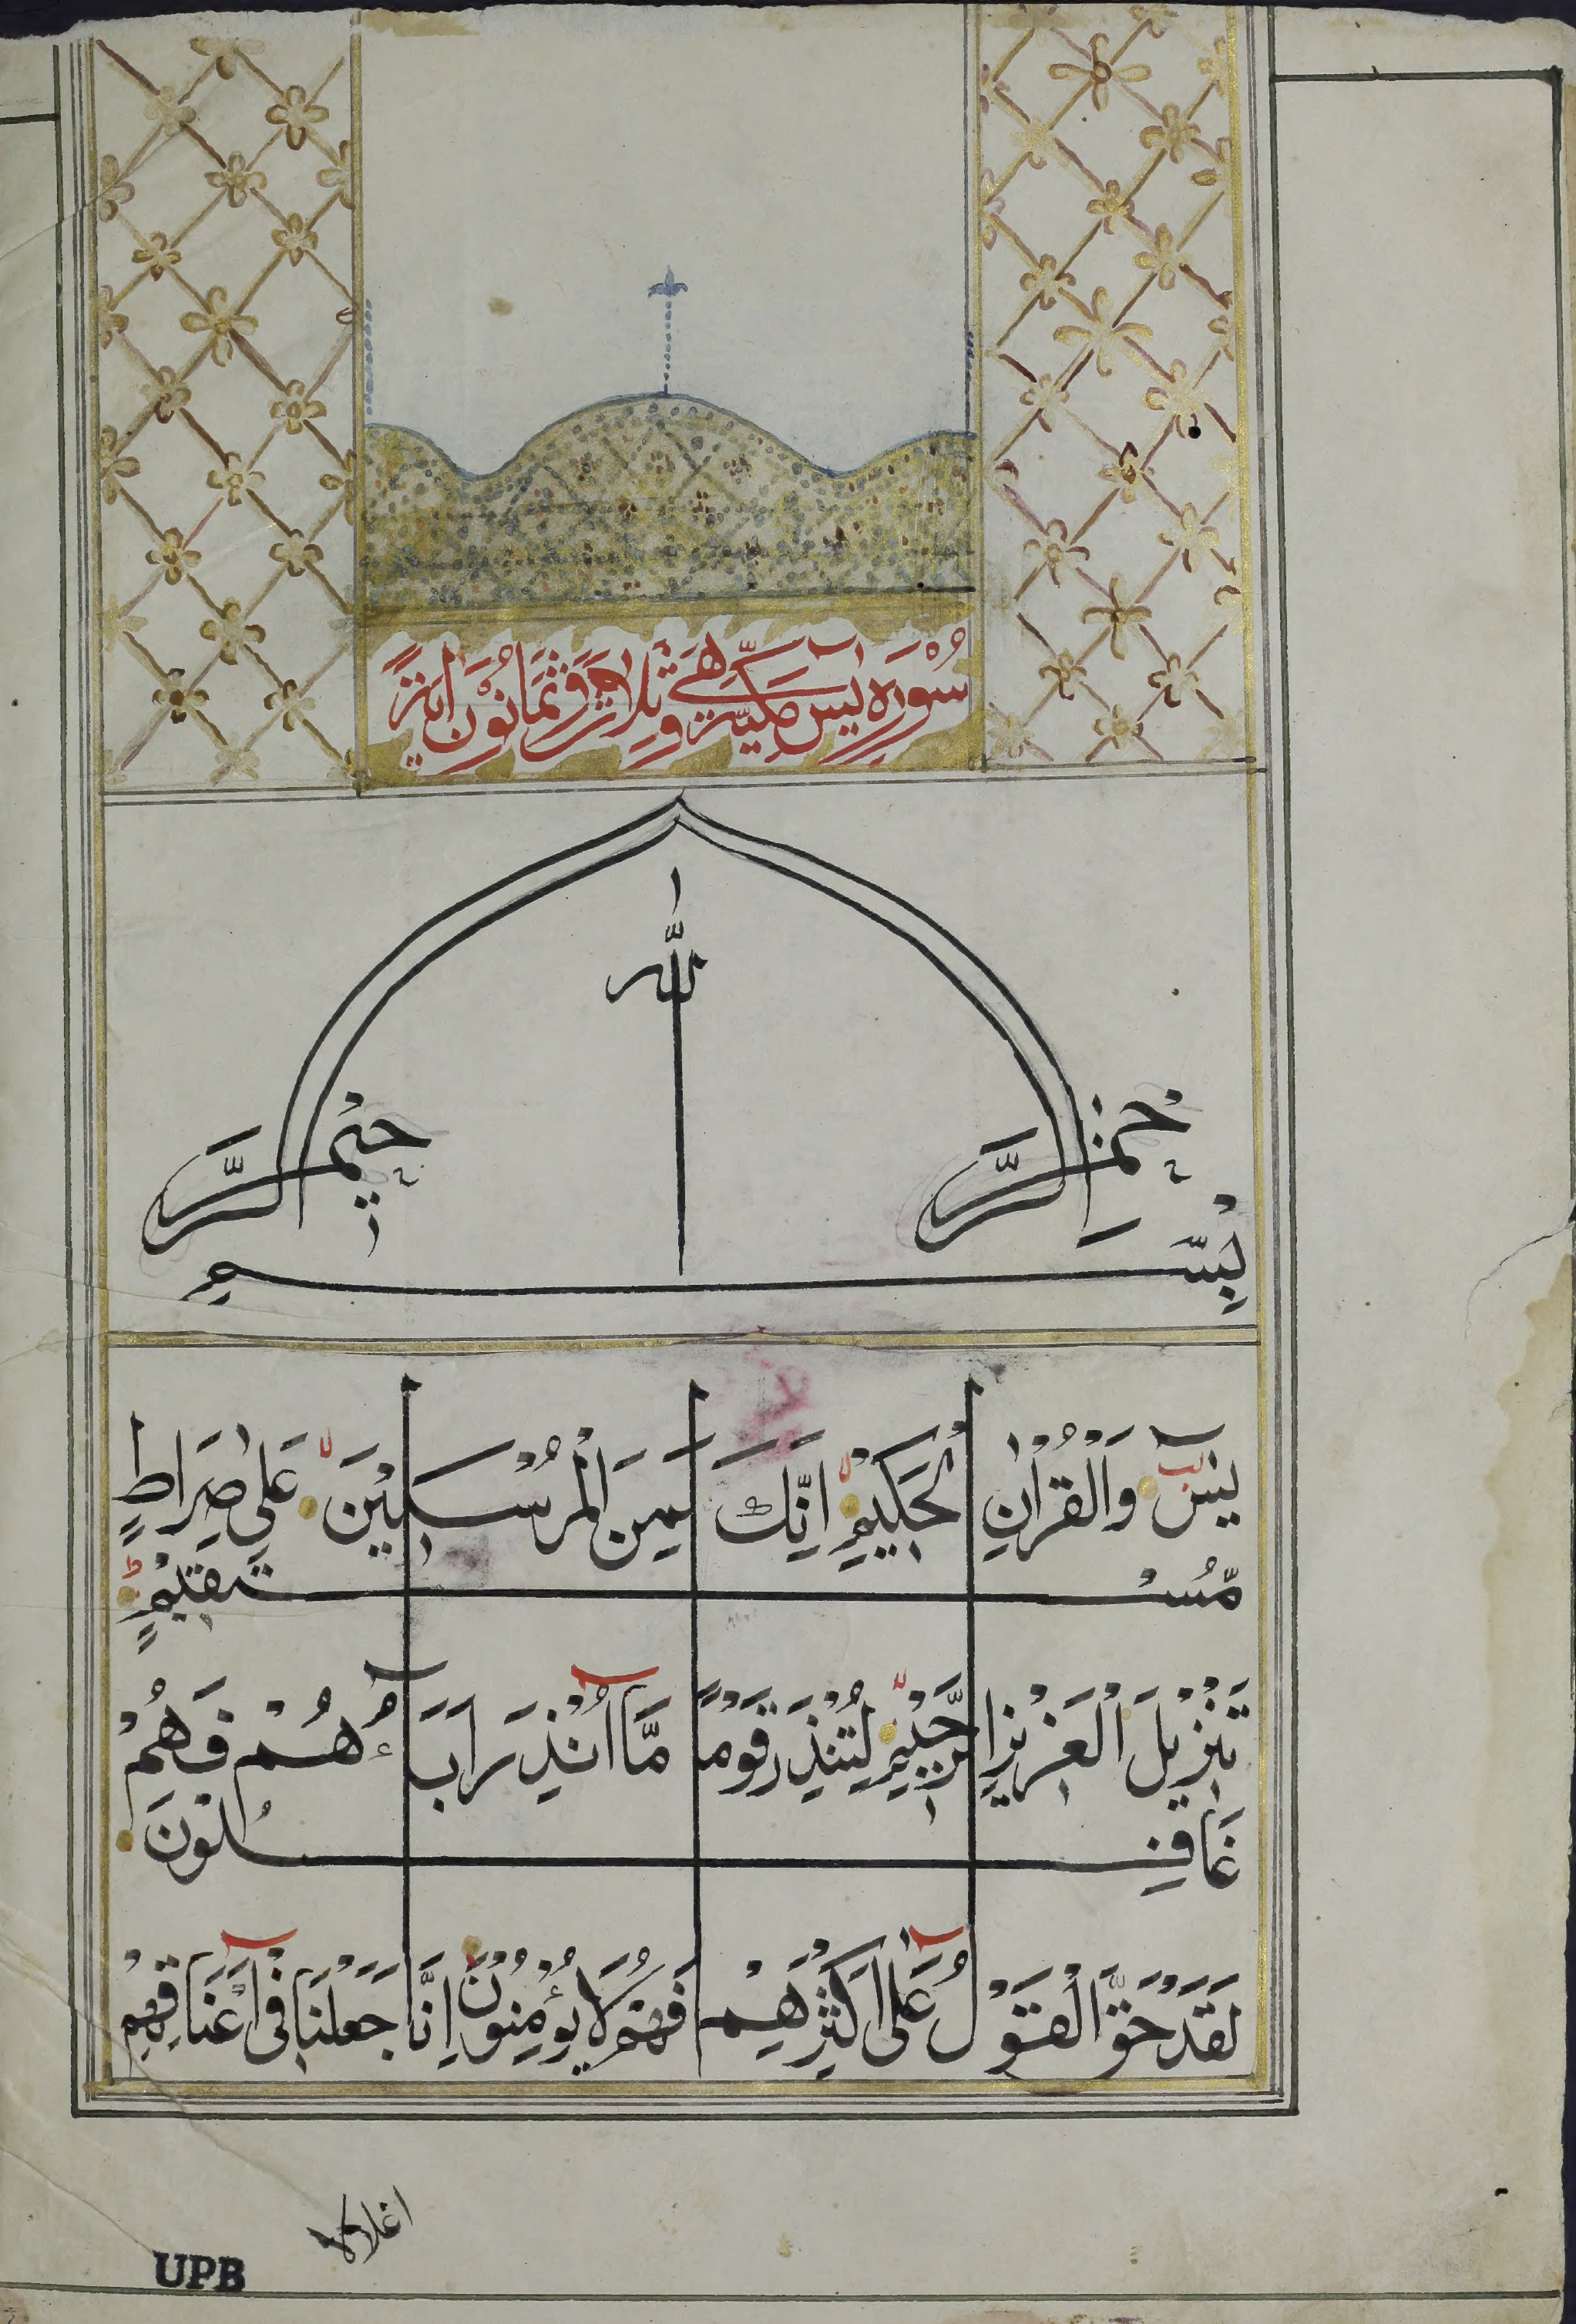 سُوْرَه يٰسٓ مَكِيَّة وَّهِىَ ثَلَاثَ وَ ثَمَانُوْنَ اٰيَةً
بِسْمِ اللّٰهِ الرَّحْمٰنِ الرَّحِيْمِ
يٰسٓ وَالْقُرْاٰنِ الْحَكِيْمِ اِنَّكَ لَمِنَ الْمُرْسَلِيْنَ عَلٰى صِرَاطٍ
مُّسْتَقِيْمٍ
تَنْزِيْلَ الْعَزِيْزِ الرَّحِيْمِ لِتُنْذِرَ قَوْمًا مَّآ اُنْذِرَ اٰبَآؤُهُمْ فَهُمْ
غَافِلُوْنَ
لَقَدْ حَقَّ الْقَوْلُ عَلٰٓى اَكْثَرِهِمْ فَهُمْ لَا يُؤْمِنُوْنَ اِنَّا جَعَلْنَا فِىْٓ اَعْنَاقِهِمْ
اغلالا
UPB